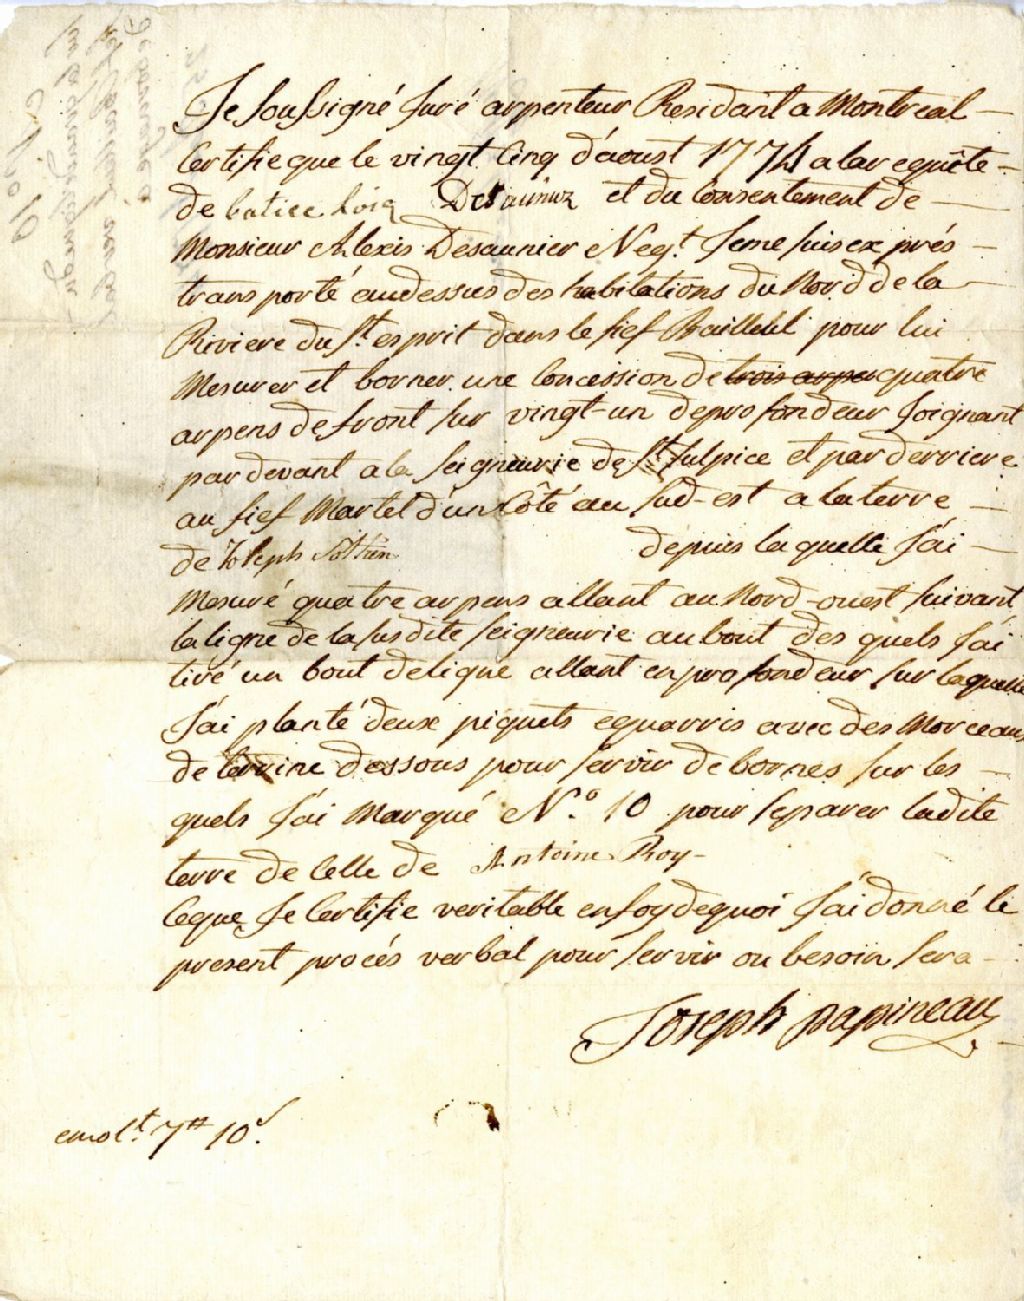 Je Soussigné Juré arpenteur Residant a Montreal
Certifie que le vingt Cinq d'aoust 1774 a la requête
de batice Desaunier et du Consentement de
Monsieur Alexis Desaunier Negt. Je me suis exprés
transporté audessus des habitations du Nord de la
Riviere du St. esprit dans le fief Bailleul pour lui
Mesurer et borner une Concession de trois arpen quatre
arpens de front sur vingt-un de profondeur Joignant
par devant a la Seigneurie de St. Sulpice et par derriere
au fief Martel d'un Côté au Sud-est a la terre
de Joseph depuis laquelle J'ai
Mesuré quatre arpens allant au Nord-ouest Suivant
la ligne de la Susdite Seigneurie au bout des quels J'ai
tiré un bout de ligne allant en profondeur sur laquelle
J'ai planté deux piquets equarris avec des Morceaux
de terrine dessous pour servir de bornes sur les
quels J'ai Marqué No. 10 pour Separer ladite
terre de Celle de Antoine Roy
Ceque Je Certifie veritable en foy de quoi J'ai donné le
present procés verbal pour servir ou besoin sera
Joseph papineau
emolt. 7tt 10s.